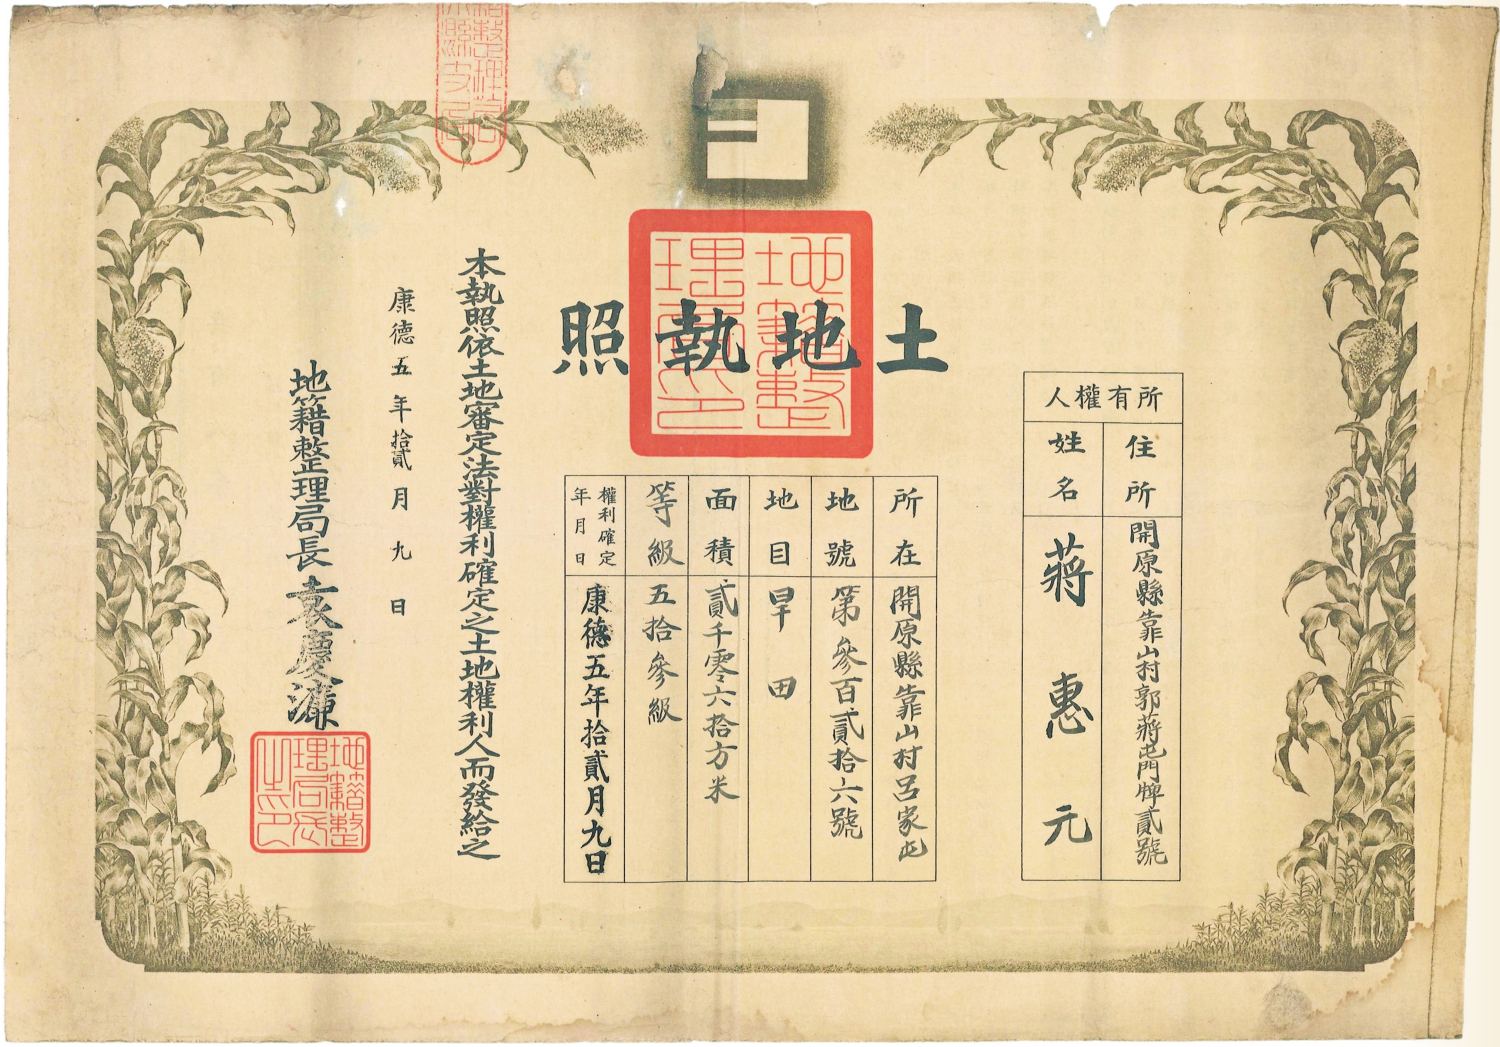 土地執照
所有權人
住所
開原縣靠山村郭蔣屯門牌貳號
姓名
蔣惠元
所在
開原縣靠山村呂家屯
地號
第參百貳拾六號
地目
旱田
面積
貳千零六拾方米
等級
五拾參級
權利確定
年月日
康德五年拾貳月九日
本執照依土地審定法對權利確定之土地權利人而發給之
康德五年拾貳月九日
地籍整理局長袁慶濂
地籍整
理局之印
地籍整
理局長
之印